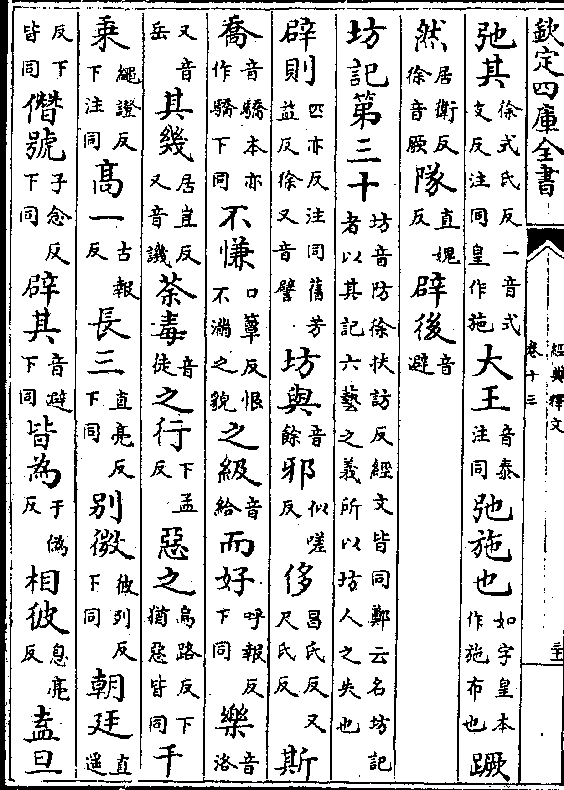 欽定四庫全書
經典釋文
卷十三
弛其徐式氏反一音式支反注同皇作施大王音泰注同弛施也如字皇本作施布也蹶
然居衛反徐音厥隊直媿反辟後音避
坊記第三十坊音防徐扶訪反經文皆同鄭云名坊記者以其記六藝之義所以坊人之失也
辟則匹亦反注同舊芳益反徐又音譬坊與音餘邪似嗟反侈昌氏反又尺氏反斯
喬音驕本亦作驕下同不慊口簟反恨不滿之貌之級音給而好呼報反下同樂音洛
又音岳其幾居豈反又音譏荼毒音徒之行下孟反惡之烏路反下猶惡皆同千
乘繩證反下注同高一古報反長三直亮反下同别微彼列反下同朝廷直遥
反下皆同僭號子念反下同辟其音避下同皆為于偽反相彼息亮反盍旦